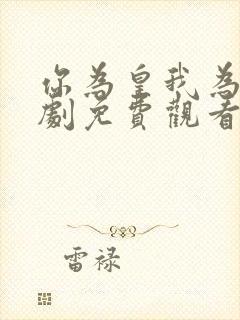 你為皇我為
劇免費觀看
雷禄